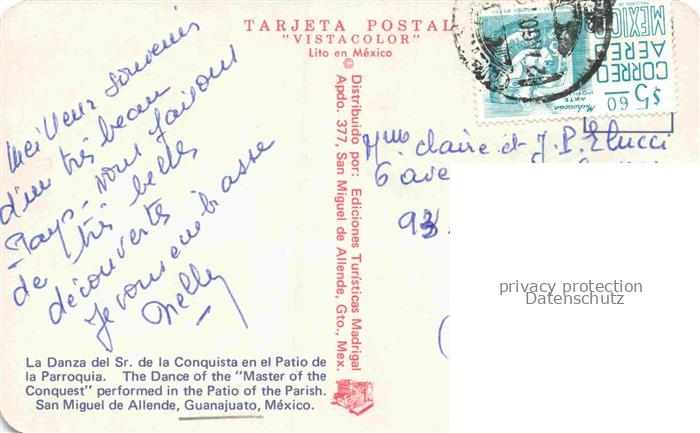 TARJETA POSTAL
"VISTACOLOR"
Lito en México
©
Distribuido por: Ediciones Turísticas Madrigal
Apdo. 377, San Miguel de Allende, Gto., Mex.
Meilleur souvenir
d'un très beau
Pays - nous faisons
de très belles
découvertes
Je vous embrasse
Nelly
MEXICO
CORREO
AEREO
$5.60
Michoacan
ARTE
POPULAR
Mme Claire et J. P. Elucci
6 ave
93
privacy protection
Datenschutz
La Danza del Sr. de la Conquista en el Patio de
la Parroquia. The Dance of the "Master of the
Conquest" performed in the Patio of the Parish.
San Miguel de Allende, Guanajuato, México.